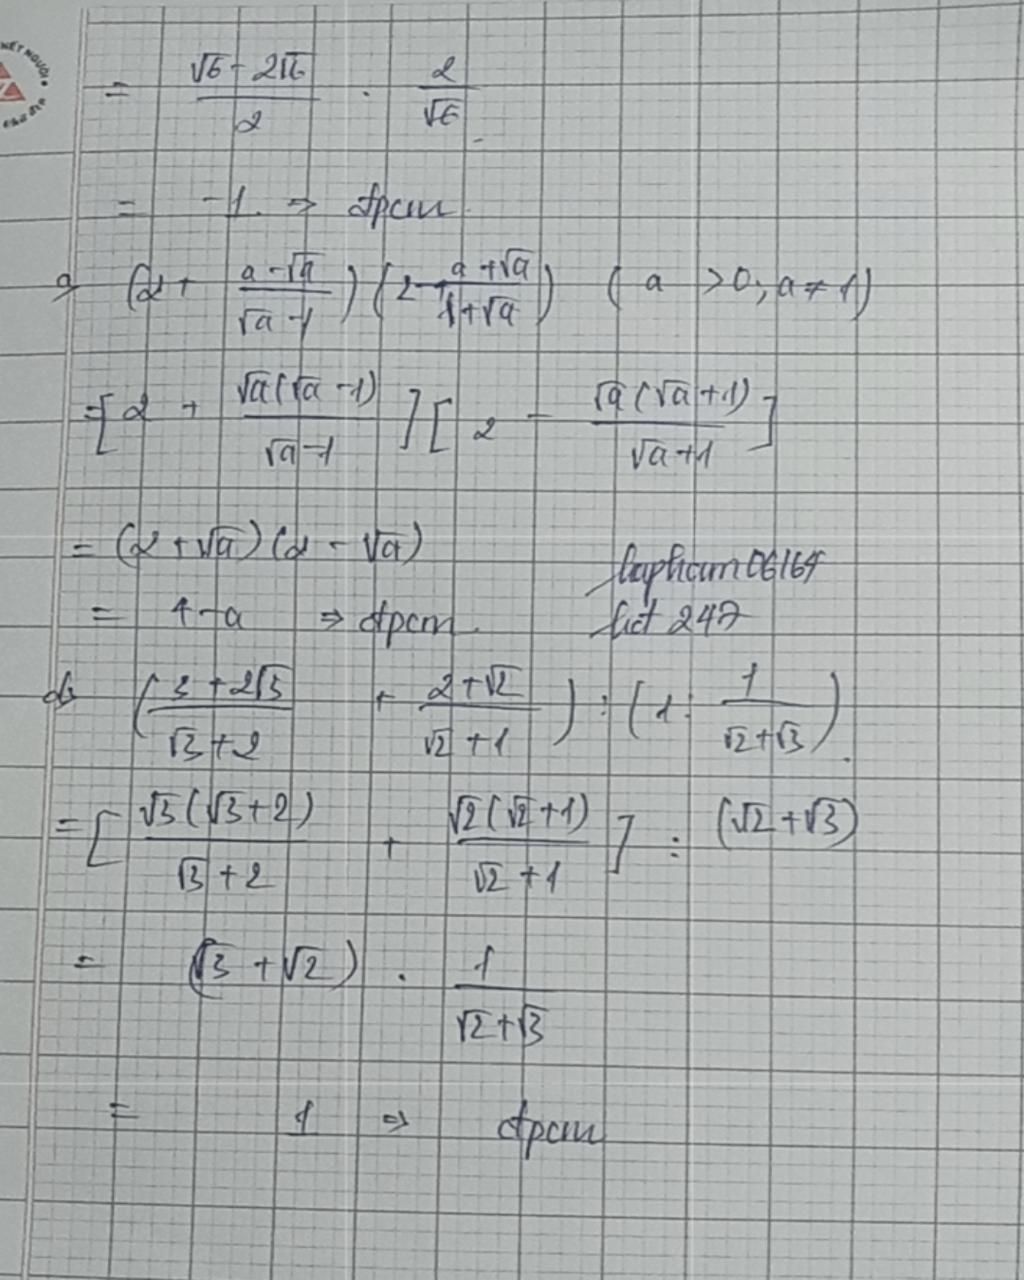 KẾT NGƯỜI
= \frac{\sqrt{6} - 2\sqrt{6}}{2} . \frac{2}{\sqrt{6}}
= -1. ⇒ đpcm
(2 + \frac{a - \sqrt{a}}{\sqrt{a} - 1}) (2 - \frac{a + \sqrt{a}}{1 + \sqrt{a}}) ( a > 0; a ≠ 1)
= [2 + \frac{\sqrt{a}(\sqrt{a} - 1)}{\sqrt{a} - 1}] [2 - \frac{\sqrt{a}(\sqrt{a} + 1)}{\sqrt{a} + 1}]
= (2 + \sqrt{a}) (2 - \sqrt{a})
= 4 - a ⇒ đpcm
d, (\frac{3 + 2\sqrt{3}}{\sqrt{3} + 2} + \frac{2 + \sqrt{2}}{\sqrt{2} + 1}) : (1 : \frac{1}{\sqrt{2} + \sqrt{3}}).
= [\frac{\sqrt{3}(\sqrt{3} + 2)}{\sqrt{3} + 2} + \frac{\sqrt{2}(\sqrt{2} + 1)}{\sqrt{2} + 1}] : (\sqrt{2} + \sqrt{3})
= (\sqrt{3} + \sqrt{2}) . \frac{1}{\sqrt{2} + \sqrt{3}}
= 1 ⇒ đpcm